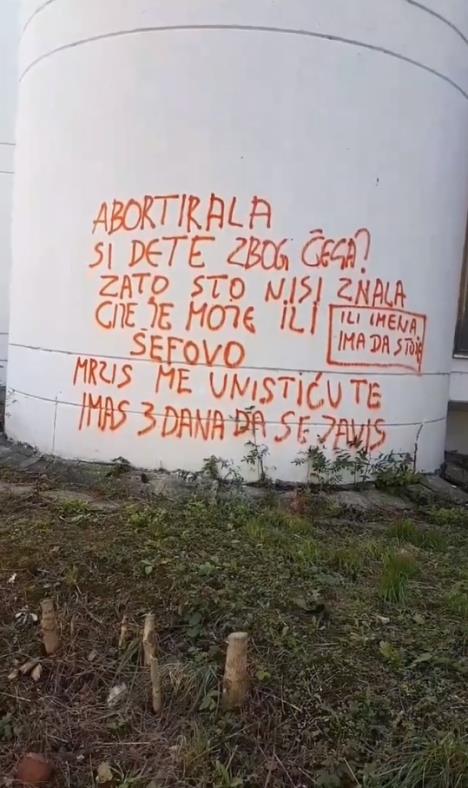 ABORTIRALA
SI DETE ZBOG ČEGA?
ZATO ŠTO NISI ZNALA
ČIJE JE MOJE ILI
ILI IMENA
IMA DA STOJE
ŠEFOVO
MRZIS ME UNISTIĆU TE
IMAS 3 DANA DA SE JAVIS